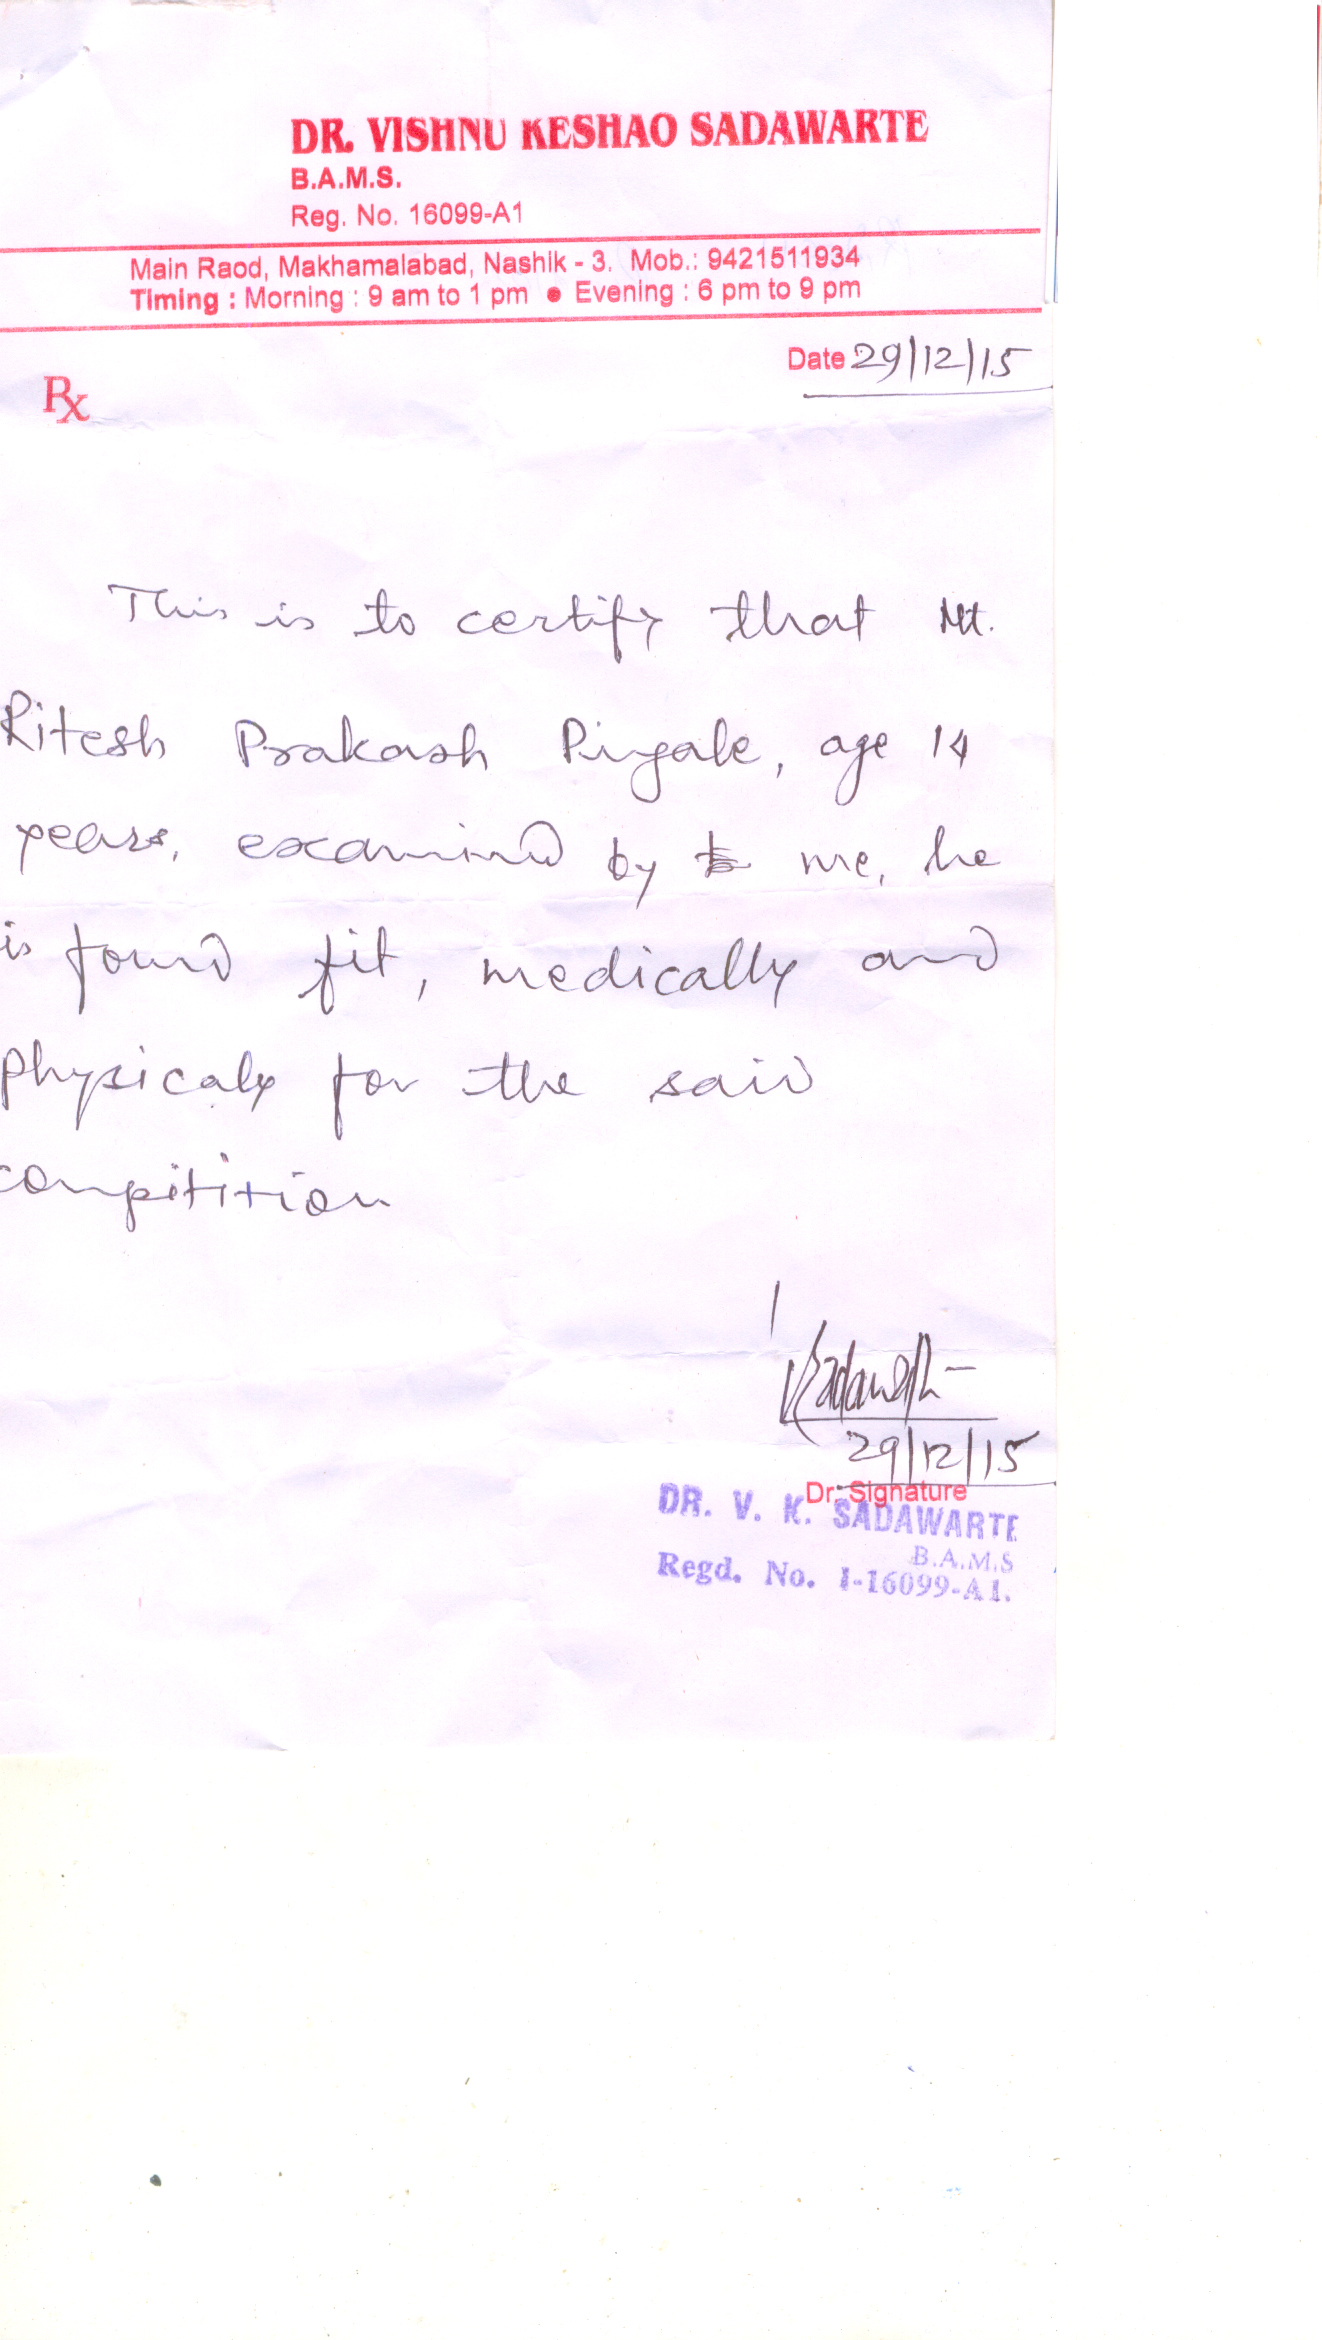 DR. VISHNU KESHAO SADAWARTE
B.A.M.S.
Reg. No. 16099-A1
Main Raod, Makhamalabad, Nashik - 3. Mob.: 9421511934
Timing : Morning : 9 am to 1 pm ● Evening : 6 pm to 9 pm
Date 29/12/15
Rx
This is to certify that Mt.
Ritesh Prakash Pingale, age 14
years, examined by me, he
is found fit, medically and
physicaly for the said
compitition
29/12/15
Dr. Signature
DR. V. K. SADAWARTE
B.A.M.S
Regd. No. I-16099-A1.